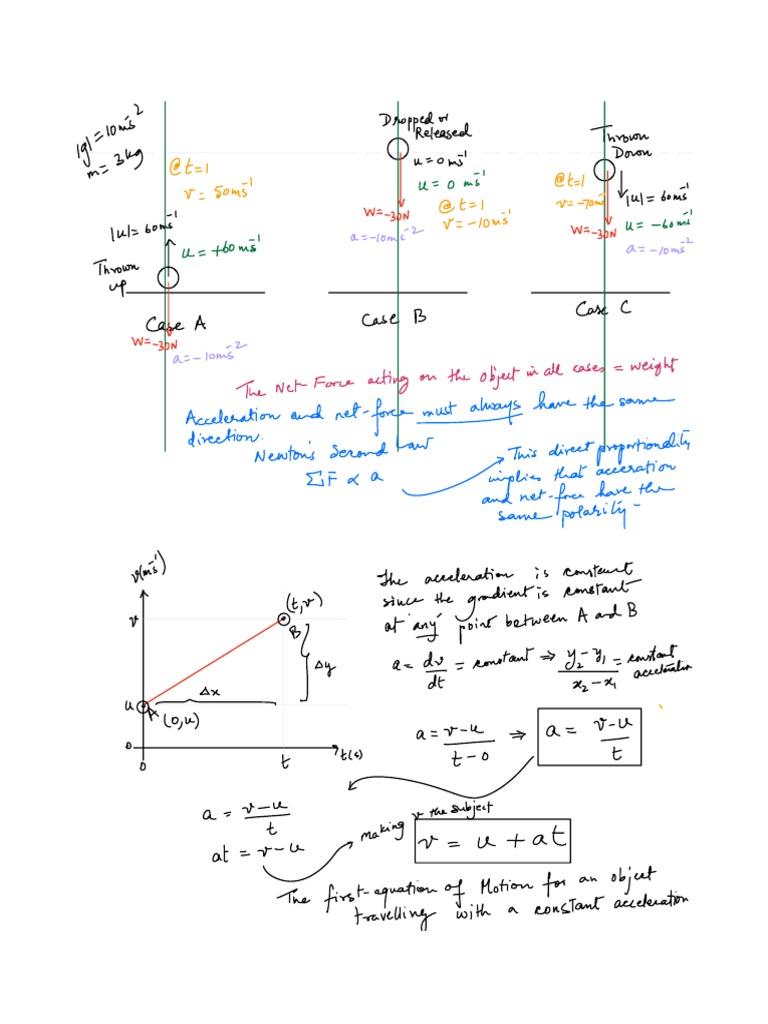 |g| = 10ms⁻²
m = 3kg
@t=1
v = 50ms⁻¹
|u| = 60ms⁻¹
u = +60ms⁻¹
Thrown
up
Case A
W=-30N
a=-10ms⁻²
Dropped or
Released
u = 0 ms⁻¹
u = 0 ms⁻¹
@t=1
v = -10ms⁻¹
W=-30N
a=-10ms⁻²
Case B
Thrown
Down
@t=1
v=-70ms⁻¹
|u| = 60ms⁻¹
W=-30N
u = -60ms⁻¹
a = -10ms⁻²
Case C
The Net Force acting on the object in all cases = weight
Acceleration and net-force must always have the same
direction.
Newton's Second Law
ΣF ∝ a
This direct proportionality
implies that acceration
and net-force have the
same polarity-
v(ms⁻¹)
v
(t,v)
B
Δy
Δx
u
A
(0,u)
0
0
t
t(s)
The acceleration is constant
since the gradient is constant
at any point between A and B
a = dv/dt = constant ⇒ y₂-y₁/x₂-x₁ = constant acceleration
a = v-u/t-0 ⇒ a = v-u/t
a = v-u/t
at = v-u
making v the subject
v = u + at
The first-equation of Motion for an object
travelling with a constant acceleration